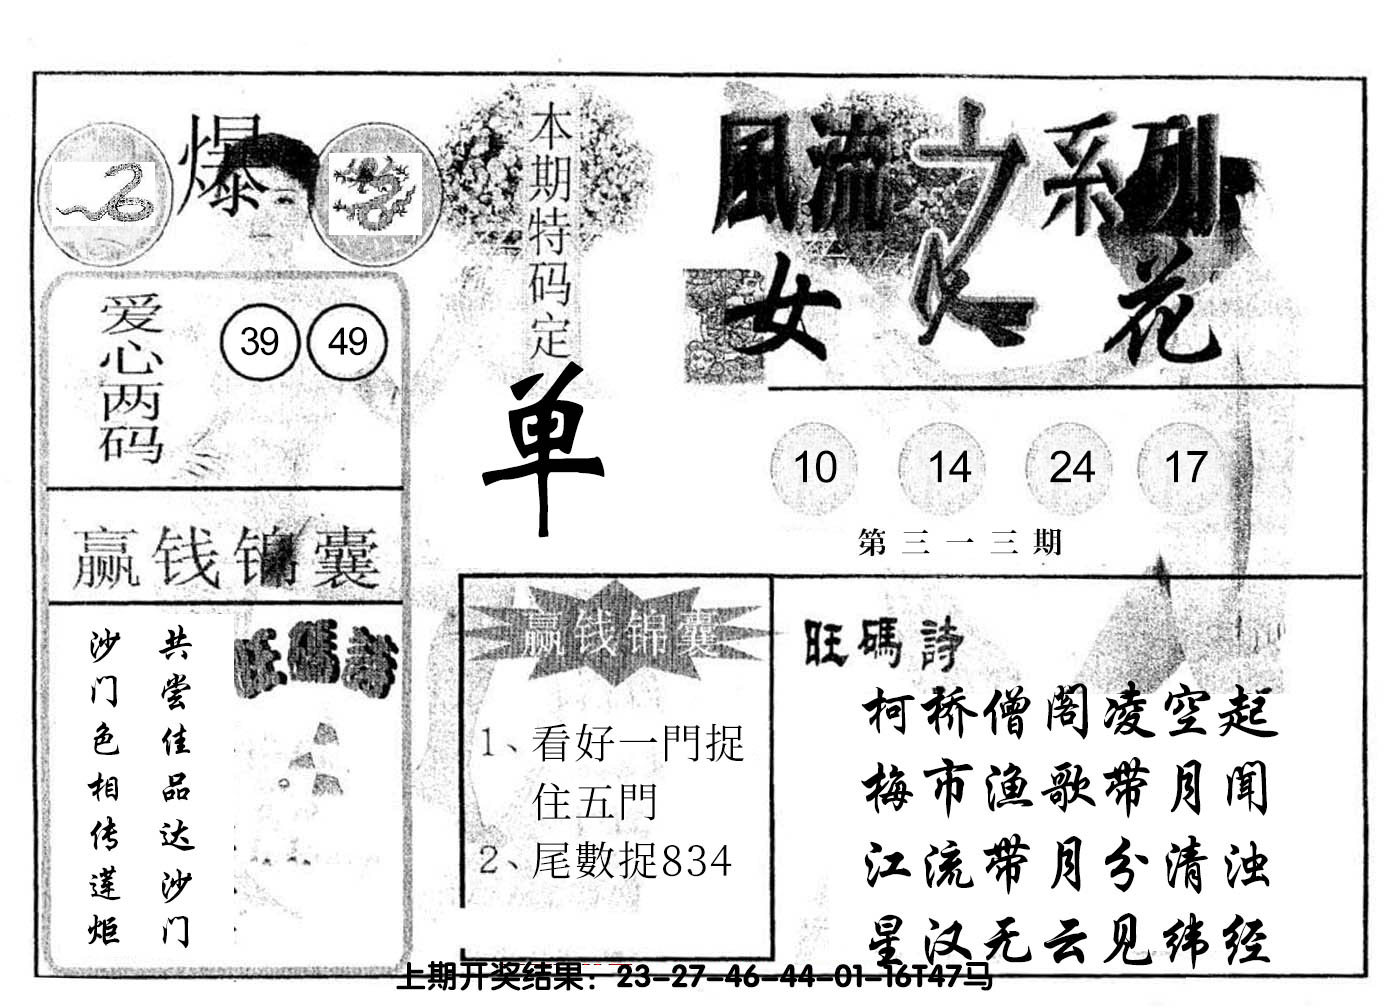 爆
爱心两码
39 49
赢钱锦囊
共尝佳品达沙门
沙门色相传莲炬
旺碼詩
本期特码定
单
風流之系列
女人花
10 14 24 17
第三一三期
赢钱锦囊
1、看好一門捉
住五門
2、尾數捉834
旺碼詩
柯桥僧阁凌空起
梅市渔歌带月闻
江流带月分清浊
星汉无云见纬经
上期开奖结果：23-27-46-44-01-16T47马